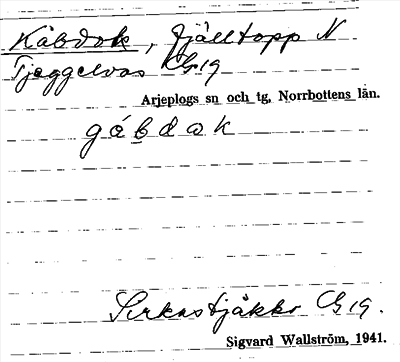 Kåbdok, fjälltopp N
Tjeggelvas Cb19
Arjeplogs sn och tg, Norrbottens län.
gáb̲dak
Serkastjåkko Cb 19.
Sigvard Wallström, 1941.